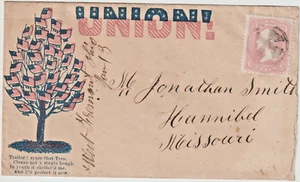 UNION!
West Ohio
Jan 13
Mr Jonathan Smith
Hannibal
Missouri
Traitor! spare that Tree,
Cleave not a single bough,
In youth it shelter'd me,
And I'll protect it now.